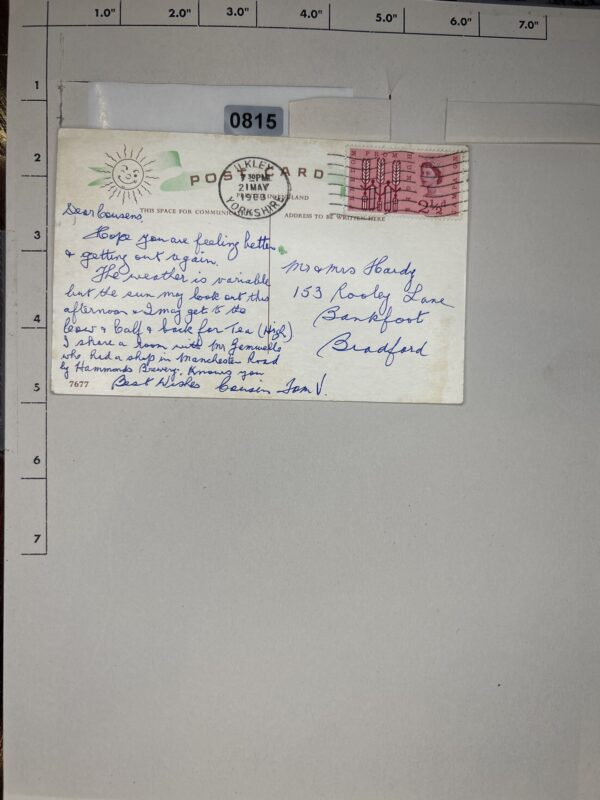 1.0" 2.0" 3.0" 4.0" 5.0" 6.0" 7.0"
1
2
3
4
5
6
7
0815
POST CARD
ILKLEY
7 30 PM
21 MAY
1963
YORKSHIRE
THIS SPACE FOR COMMUNIC
ADDRESS TO BE WRITTEN HERE
2½d
Dear Cousens,
Hope you are feeling better
& getting out again.
The weather is variable
but the sun may look out this
afternoon & I may get to the
Cow & Calf & back for Tea (High)
I share a room with Mr
who had a shop in Manchester Road
by Hammonds Brewery. Knows you
Best Wishes Cousin Tom V.
7677
Mr & Mrs Hardy
153 Rooley Lane
Bankfoot
Bradford